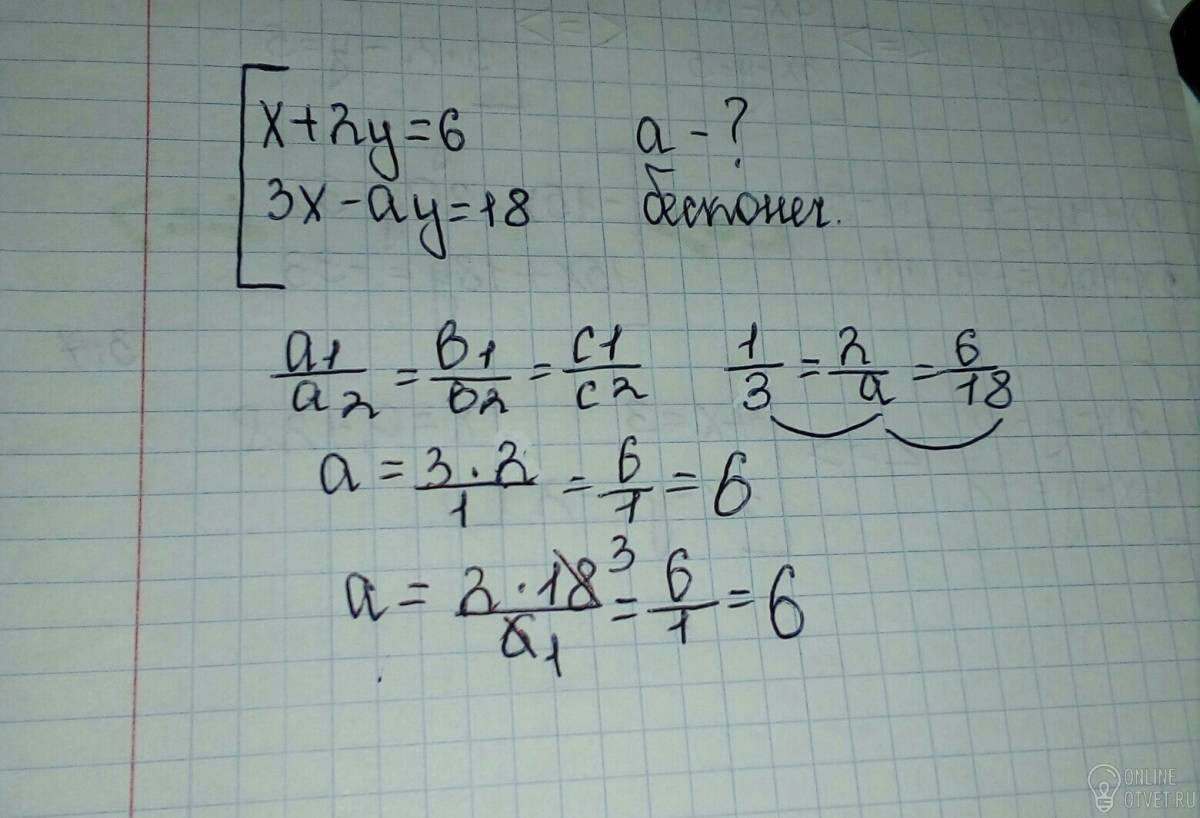 x+2y=6 a-?
3x-ay=18 бесконеч.
a1/a2 = b1/b2 = c1/c2 1/3 = 2/a = 6/18
a = 3·2/1 = 6/1 = 6
a = 2·18 3/6 1 = 6/1 = 6
ONLINE
OTVET.RU